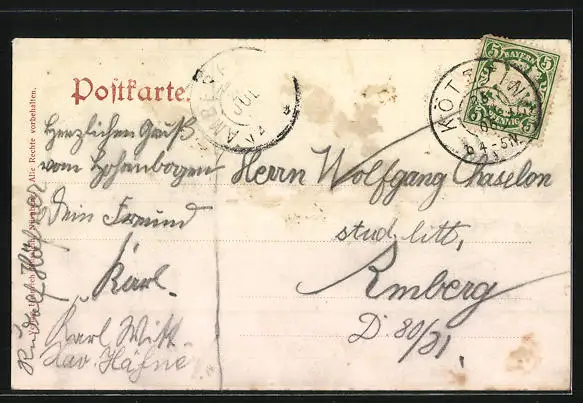 Postkarte
Alle Rechte vorbehalten.
Herzlichen Gruß
vom Hohenbogen
Dein Freund
Karl.
Karl Witt
Xav. Häfne
Rudolf
AMBERG
KÖTZTING
5 BAYERN 5
Herrn Wolfgang Chaselon
stud. litt,
Amberg
D. 80/31.